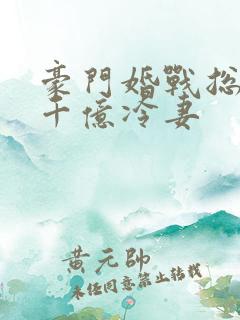 豪門婚戰总
千億冷妻
黄元帥
未经同意禁止转载